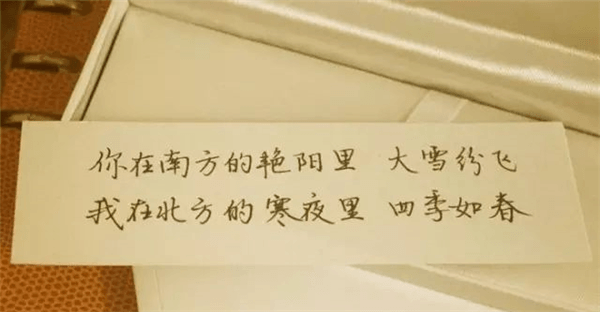 你在南方的艳阳里 大雪纷飞
我在北方的寒夜里 四季如春